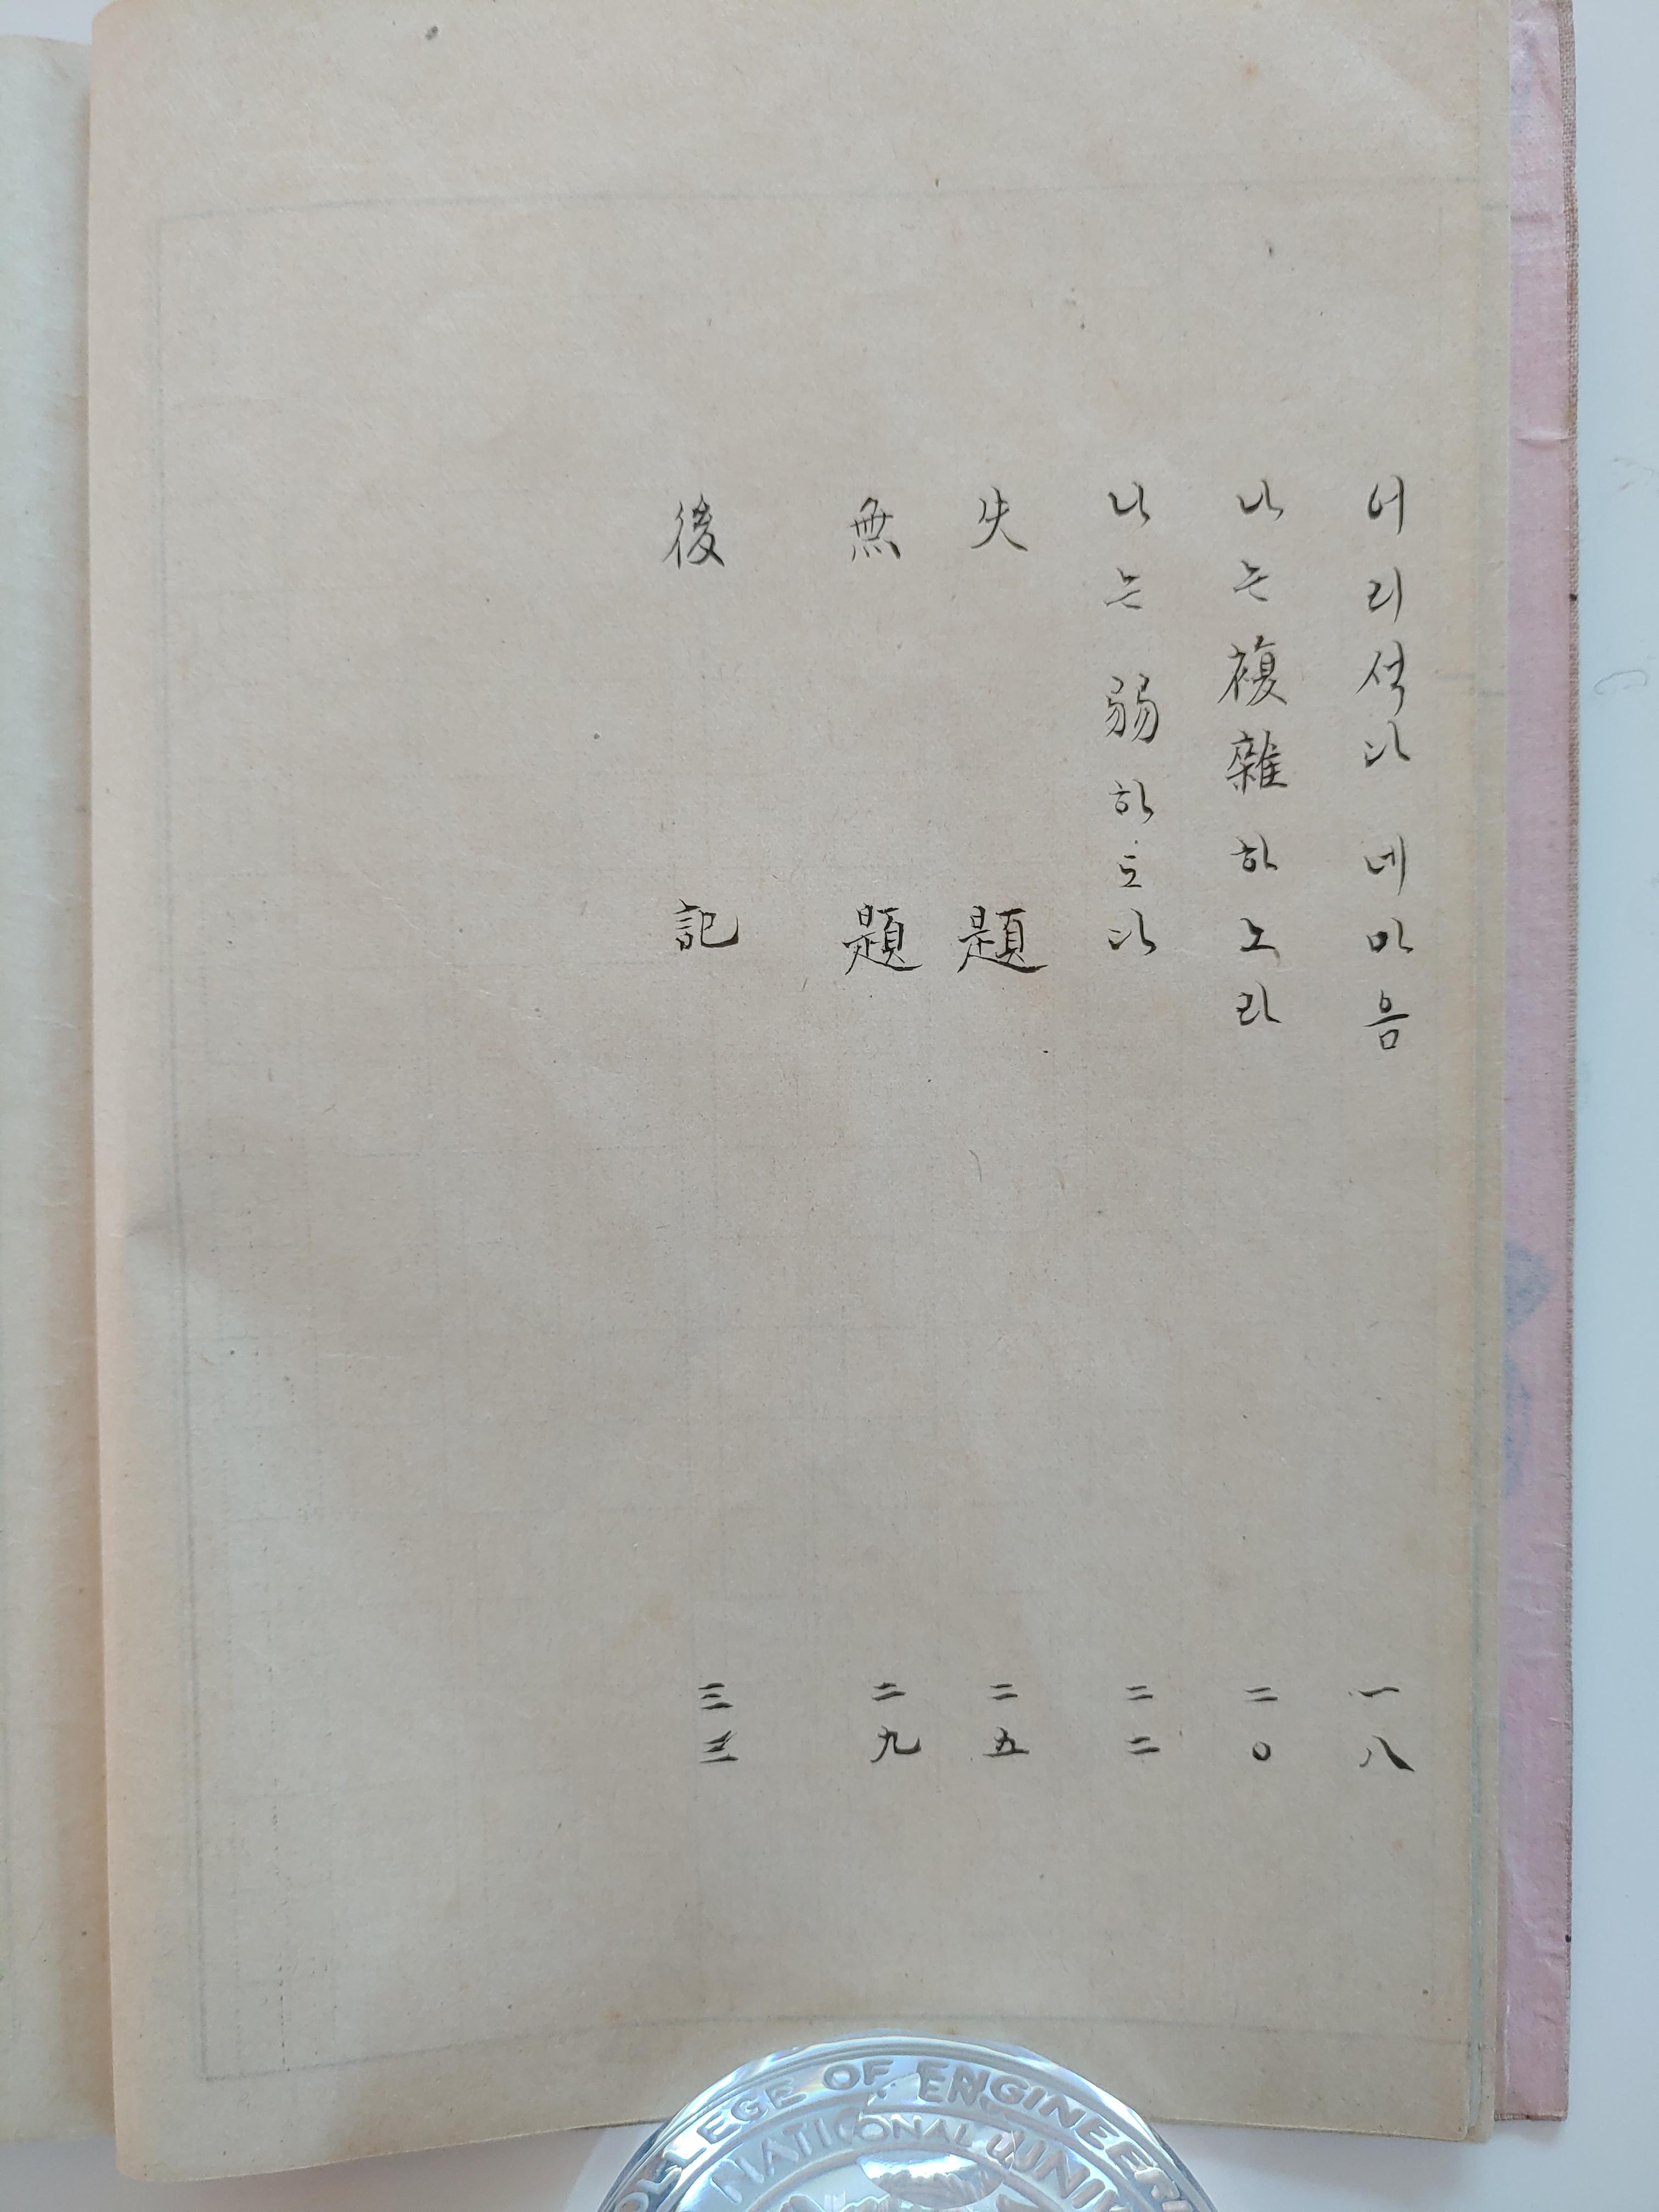 어리석다 네마음 一八
나는複雜하노라 二〇
나는 弱하도다 二二
失題 二五
無題 二九
後記 三三
OLLEGE OF ENGINEERI
NATIONAL UNIV